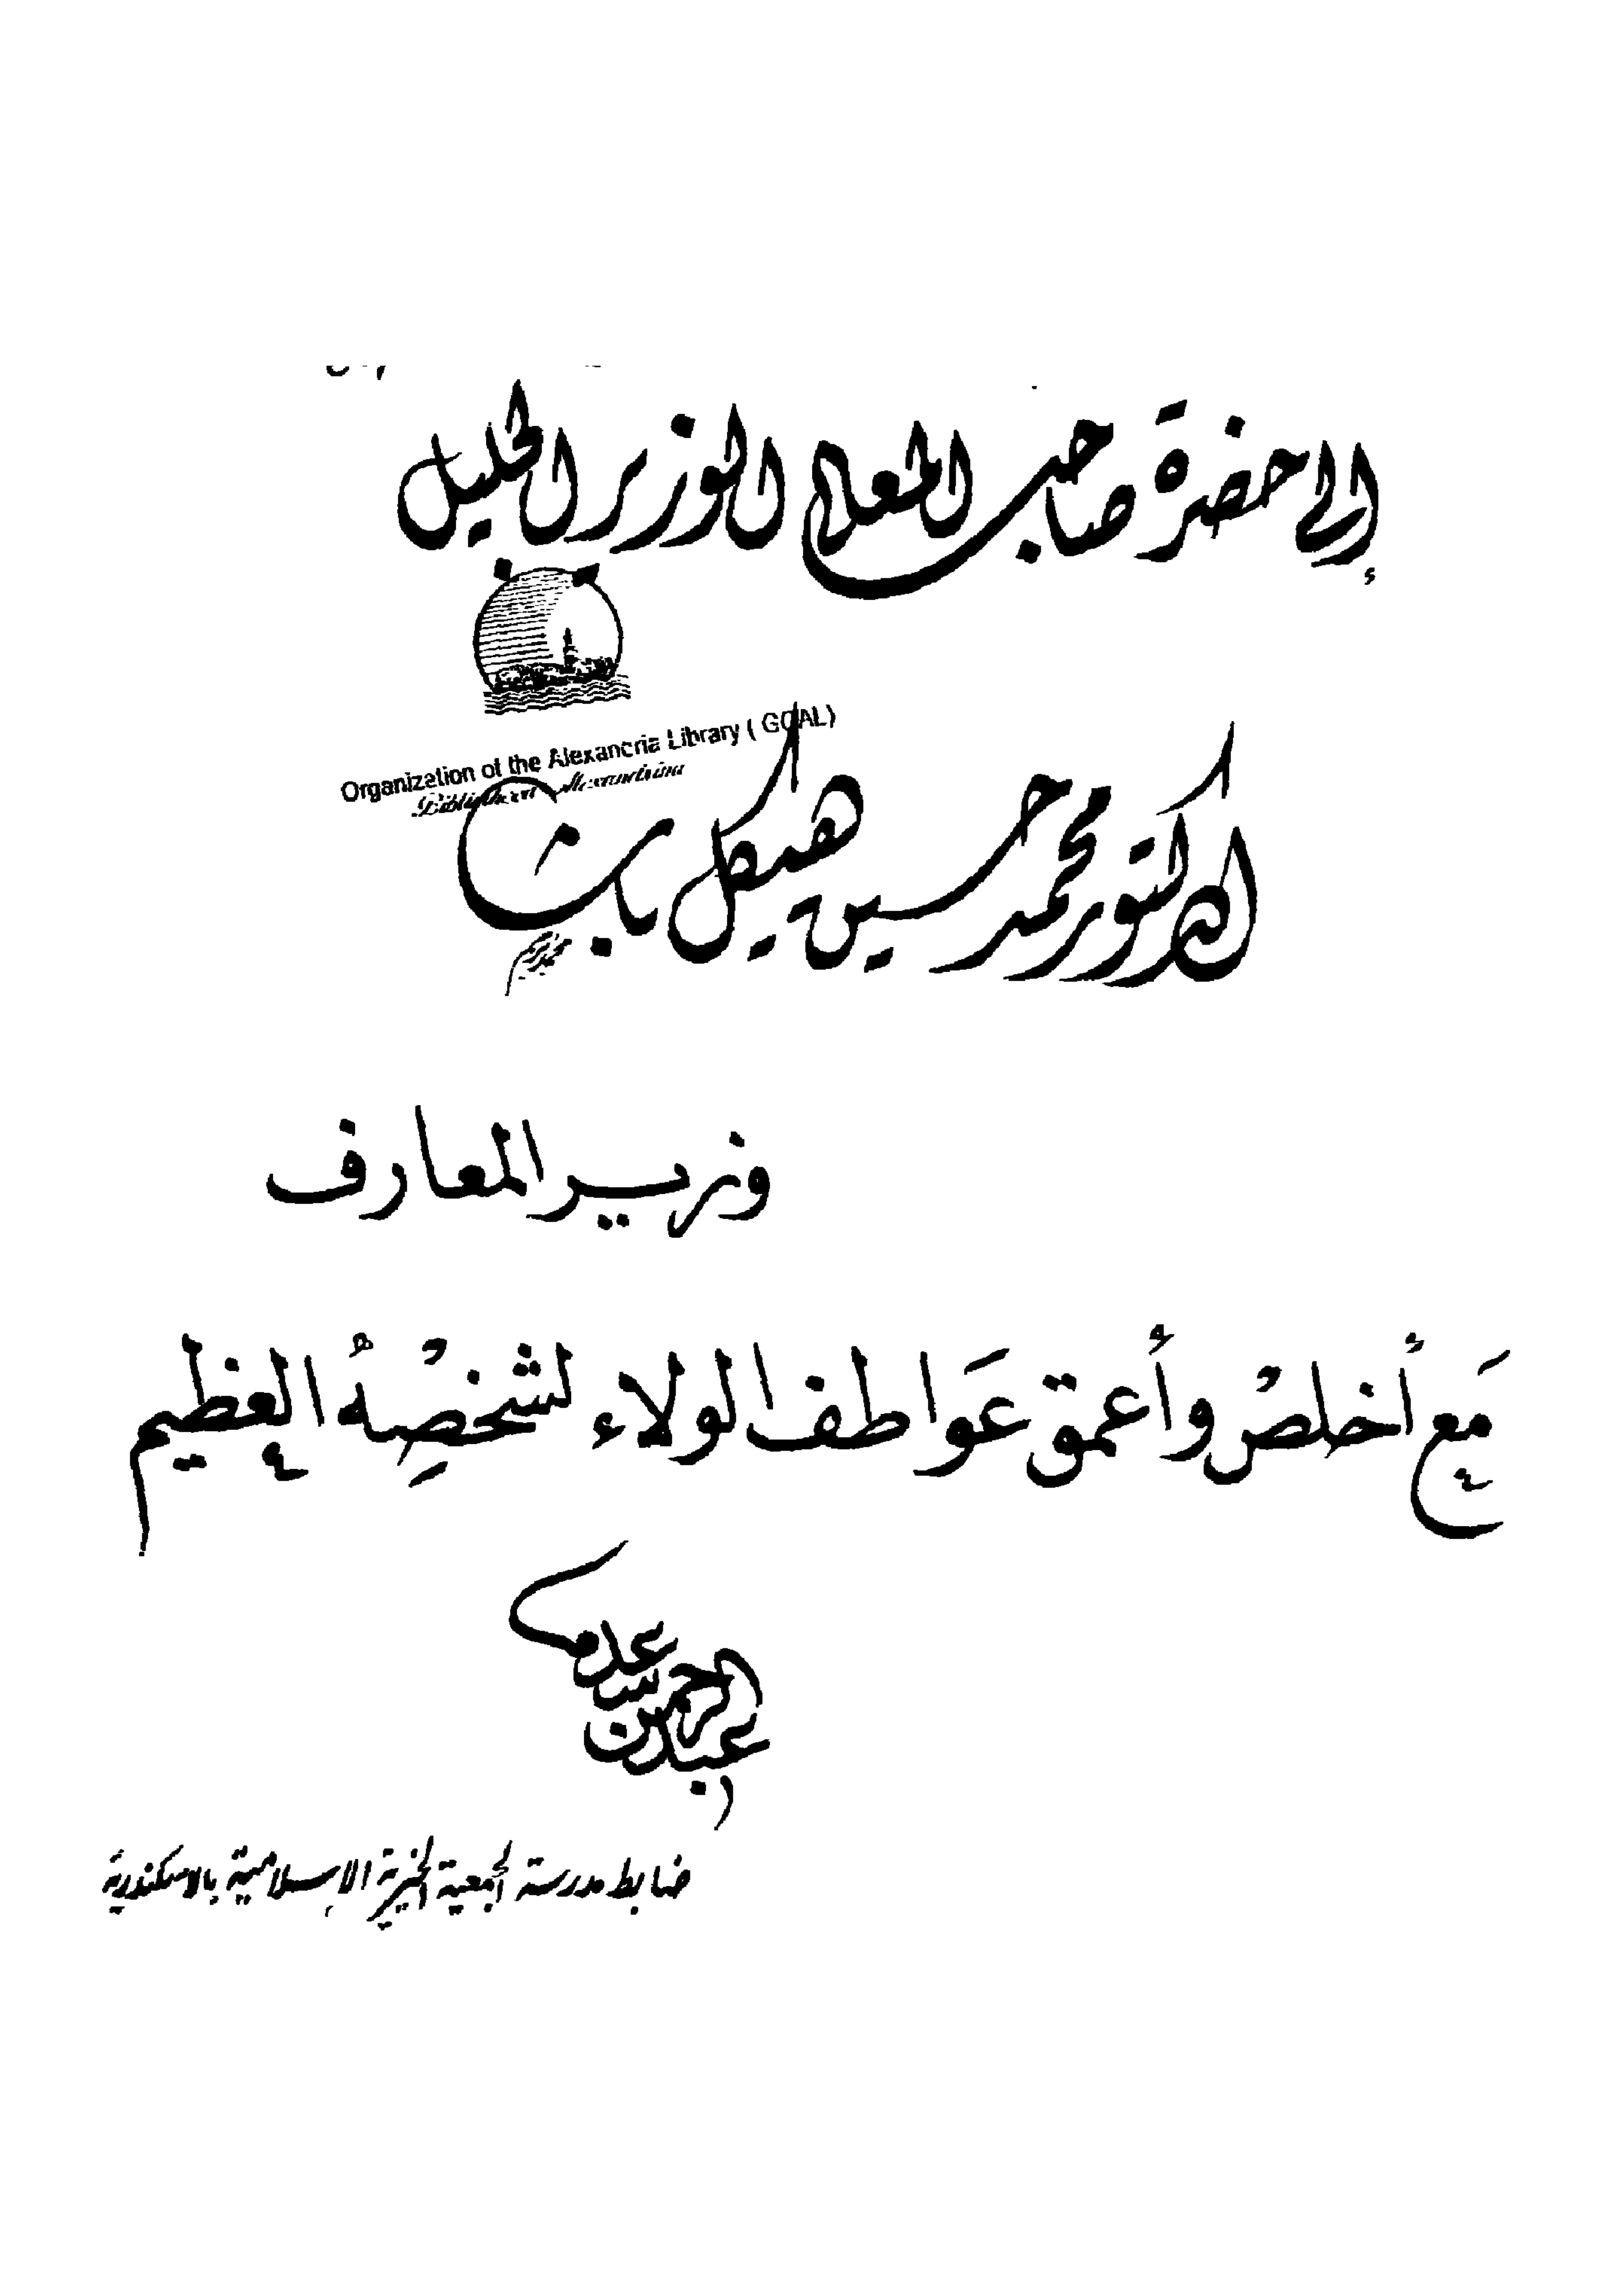 إلى حضرة صاحب المعالي الوزير الجليل
Organization of the Alexandria Library ( GOAL)
Bibliotheca Alexandrina
الدكتور محمد حسين هيكل باشا
وزير المعارف
مَع أخلص وأعمق عَواطف الولاء لشخصِهُ العظيم
عبد الرحمن
ضابط مدرسة الجمعية الخيرية الإسلامية بالاسكندرية